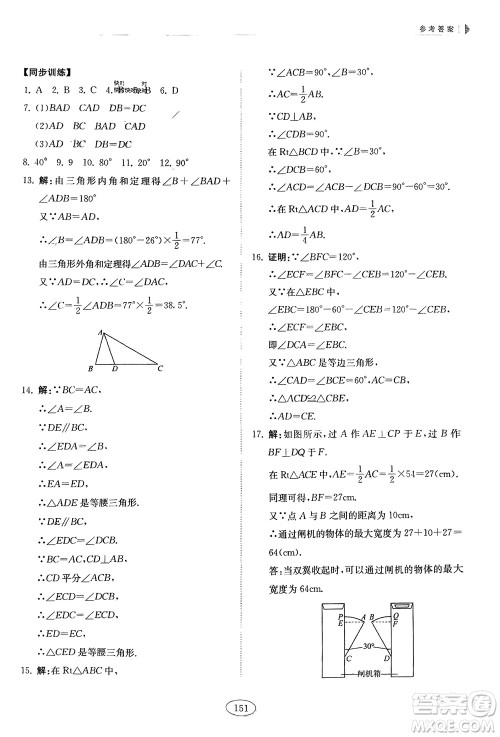 参考答案
【同步训练】
1. A 2. B 3. C 4. B 5. B 6. D
7. (1)BAD CAD DB=DC
(2)AD BC BAD CAD
(3)AD BC DB=DC
8. 40° 9. 9 10. 60° 11. 2 12. 90°
13. 解:由三角形内角和定理得∠B+∠BAD+
∠ADB=180°
又∵AB=AD
∴∠ADB=(180°-26°)×1/2=77°
由三角形外角和定理得∠C+∠DAC=∠ADB
∴∠C=1/2∠ADB=77°×1/2=38.5°.
A
B D C
14. 解:∵BC=AC,
∴∠A=∠B.
∵DE∥BC,
∴∠EDA=∠B,
∴∠A=∠EDA,
∴EA=ED,
∴△ADE是等腰三角形.
∵DE∥BC,
∴∠EDC=∠DCB.
又∵BC=AC,BD=AD,
∴CD平分∠ACB,
∴∠DCB=∠ECD,
∴∠EDC=∠ECD,
∴ED=EC,
∴△CED是等腰三角形.
15. 解:在Rt△ABC中,
∵∠ACB=90°,∠A=30°,
∴BC=1/2AB,∠B=60°.
又∵CD⊥AB,
∴∠DCB=30°.
在Rt△ADC中,
∵∠DCB=30°,
∴BD=1/2BC,
∴BD=1/4AB.
16. 证明:∵∠BFC=120°,
∴∠ECF=∠BFC-∠CEB=120°-∠CEB.
∠BCE=180°-60°-∠CEB=120°-∠CEB,
∴∠ECF=∠BCE,
即∠DCA=∠BCE.
又∵△ABC是等边三角形,
∴△ACD≌△BCE,
∴AD=CE.
17. 解:如图所示,过A作AE⊥CP于E,过B作
BF⊥DQ于F,
在Rt△ACE中,AE=1/2AC=1/2×54=27(cm),
同理可得,BF=27cm.
又∵点A与B之间的距离为10cm,
∴通过闸机的物体的最大宽度为27+10+27=
64(cm).
答:当双翼收起时,可以通过闸机的物体的最大
宽度为64cm.
P A B Q
E F
30°
C D
闸机箱
151